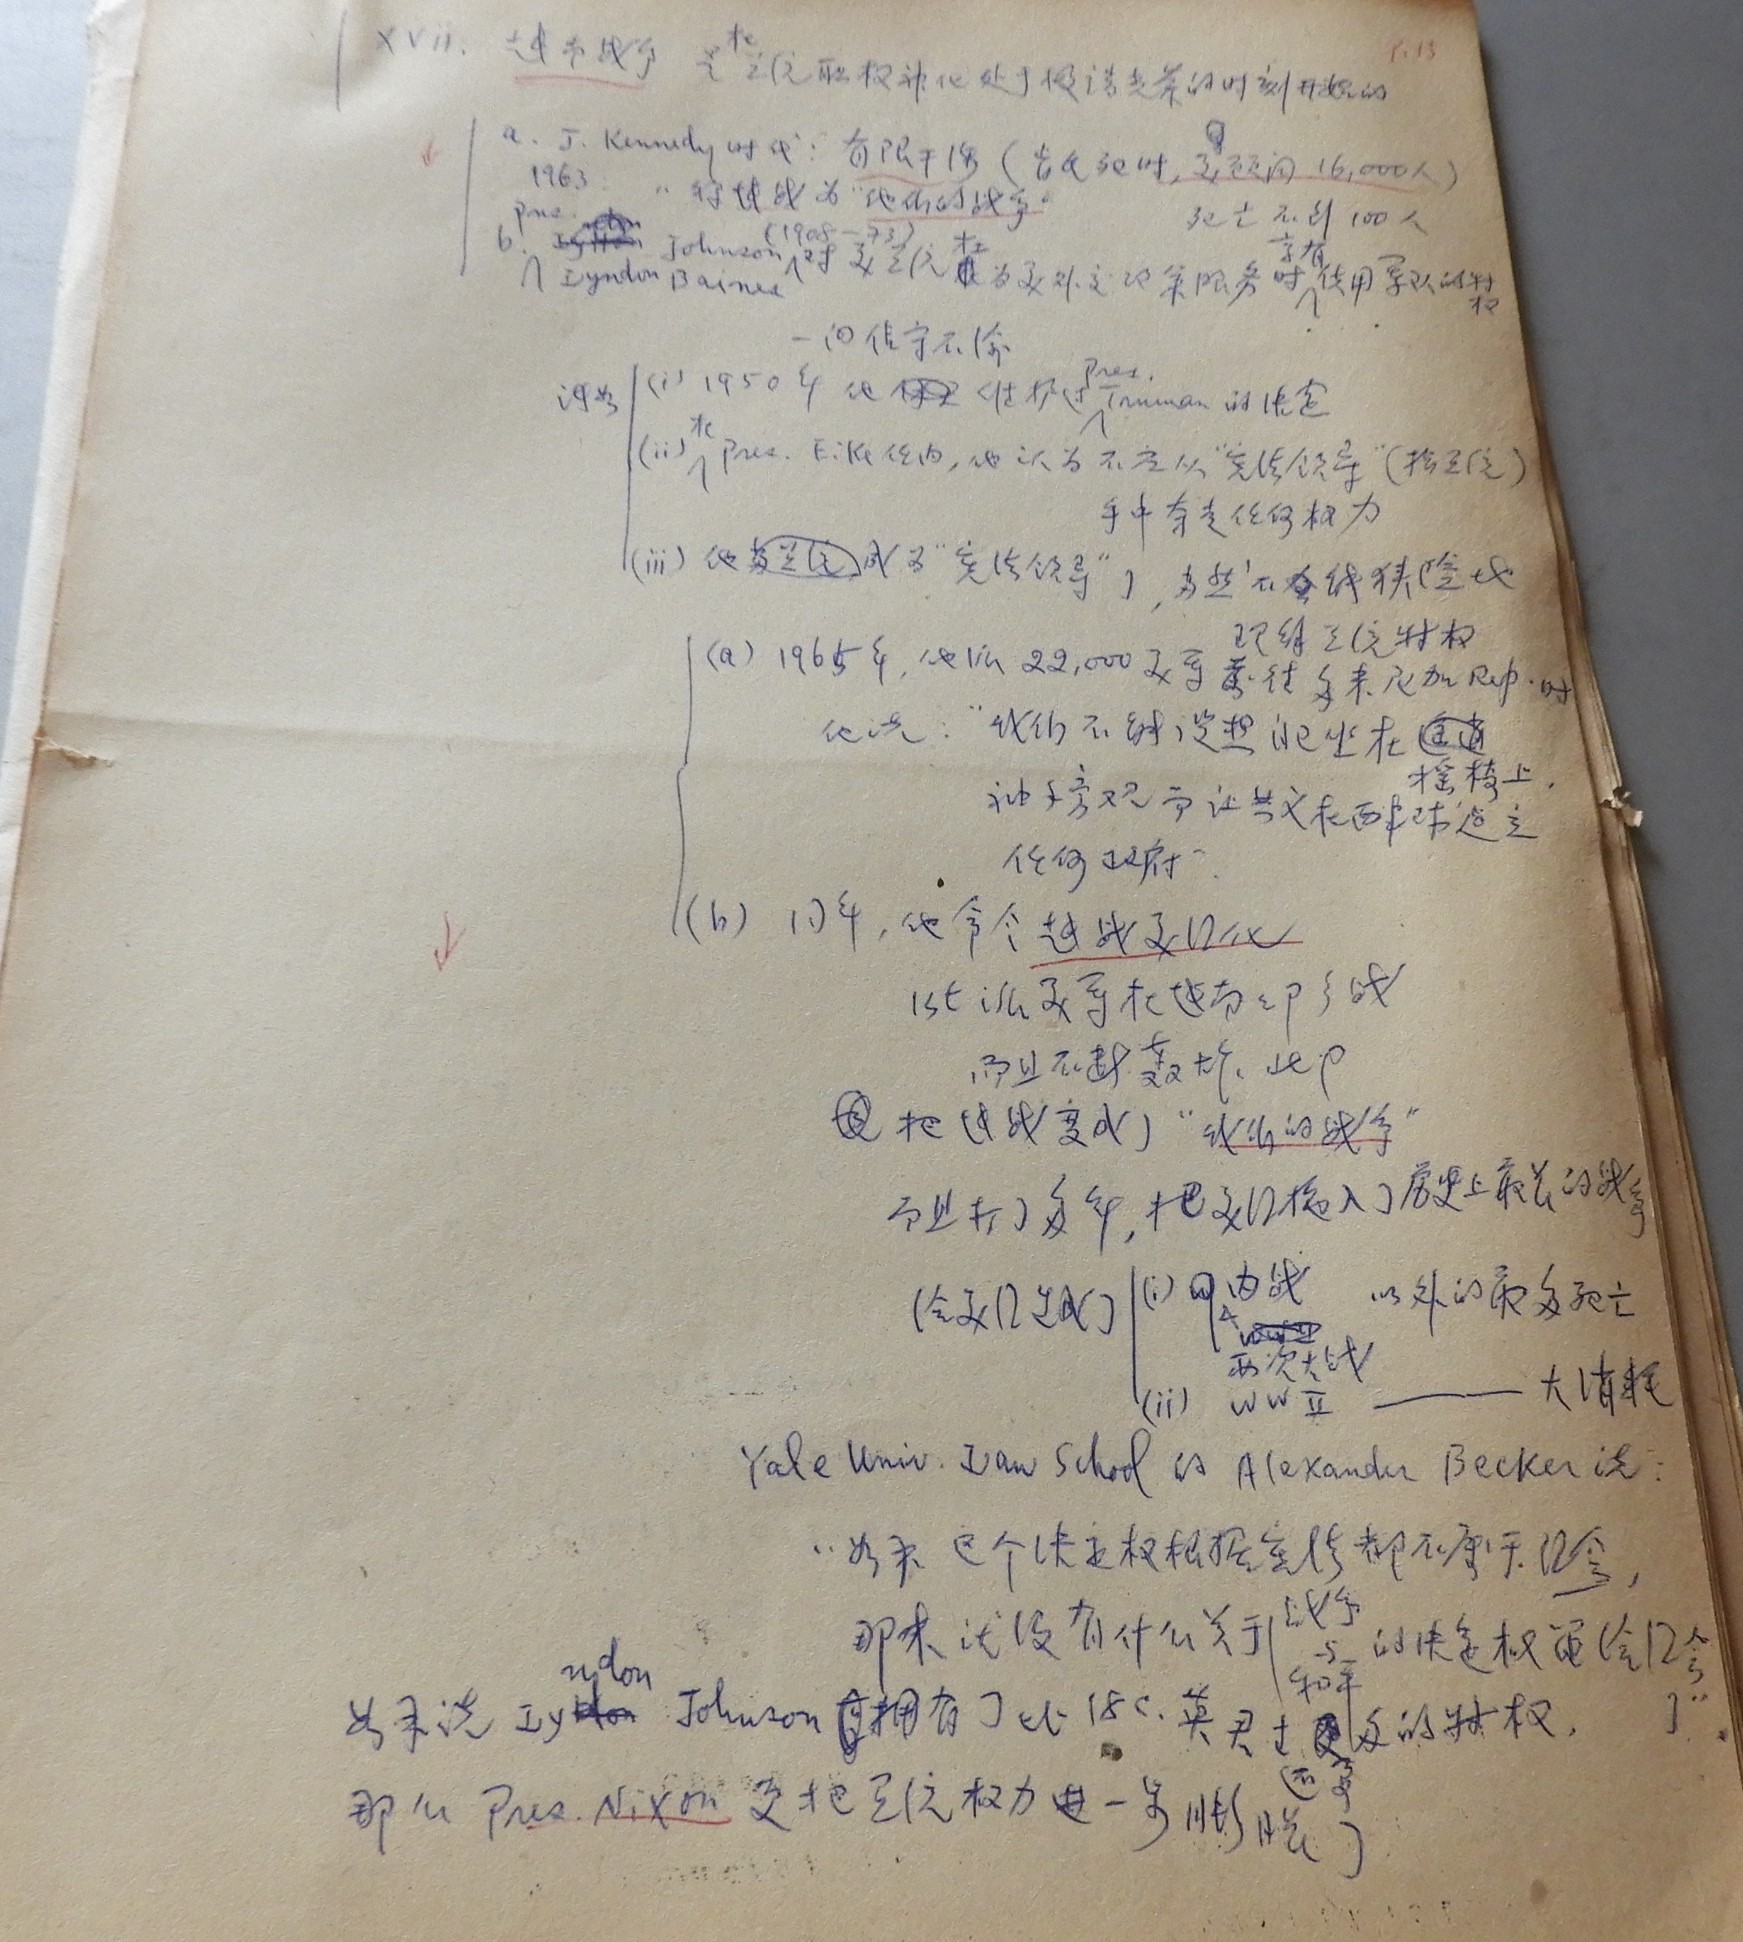 P.13
xvii. 越南战争 是在总统职权神化处于极端光荣的时刻开始的
a. J. Kennedy时代：有限干涉（肯氏死时，美顾问16,000人）
1963 称越战为“他们的战争” 死亡不到100人
b. Pres. Lyndon Baines Johnson (1908-73) 对美总统在为美外交政策服务时享有使用军队的特权
一向信守不渝
例如 (i) 1950年他维护过Pres. Truman的决定
(ii) 在Pres. Eike任内，他认为不应从“宪法领导”（指总统）
手中夺走任何权力
(iii) 他成为“宪法领导”了，当然不会狭隘地
理解总统特权
(a) 1965年，他派22,000美军前往多米尼加Rep.时
他说：“我们不能设想能坐在摇椅上，
袖手旁观而让共产在西半球建立
任何政府”
(b) 同年，他命令越战美国化
1st 派美军在越南南部参战
而且不断轰炸北部
把越战变成了“我们的战争”
而且打了多年，把美国拖入了历史上最长的战争
给美国造成了 (i) 内战 两次大战 以外的最多死亡
(ii) WW II —— 大消耗
Yale Univ. Law School 的 Alexander Becker 说：
“如果这个决定权根据宪法都不属于国会，
那末就没有什么关于战争与和平的决定权留给国会了”。
如果说 Lyndon Johnson 拥有了比18c.英君主还要多的特权，
那么 Pres. Nixon 更把总统权力进一步膨胀了